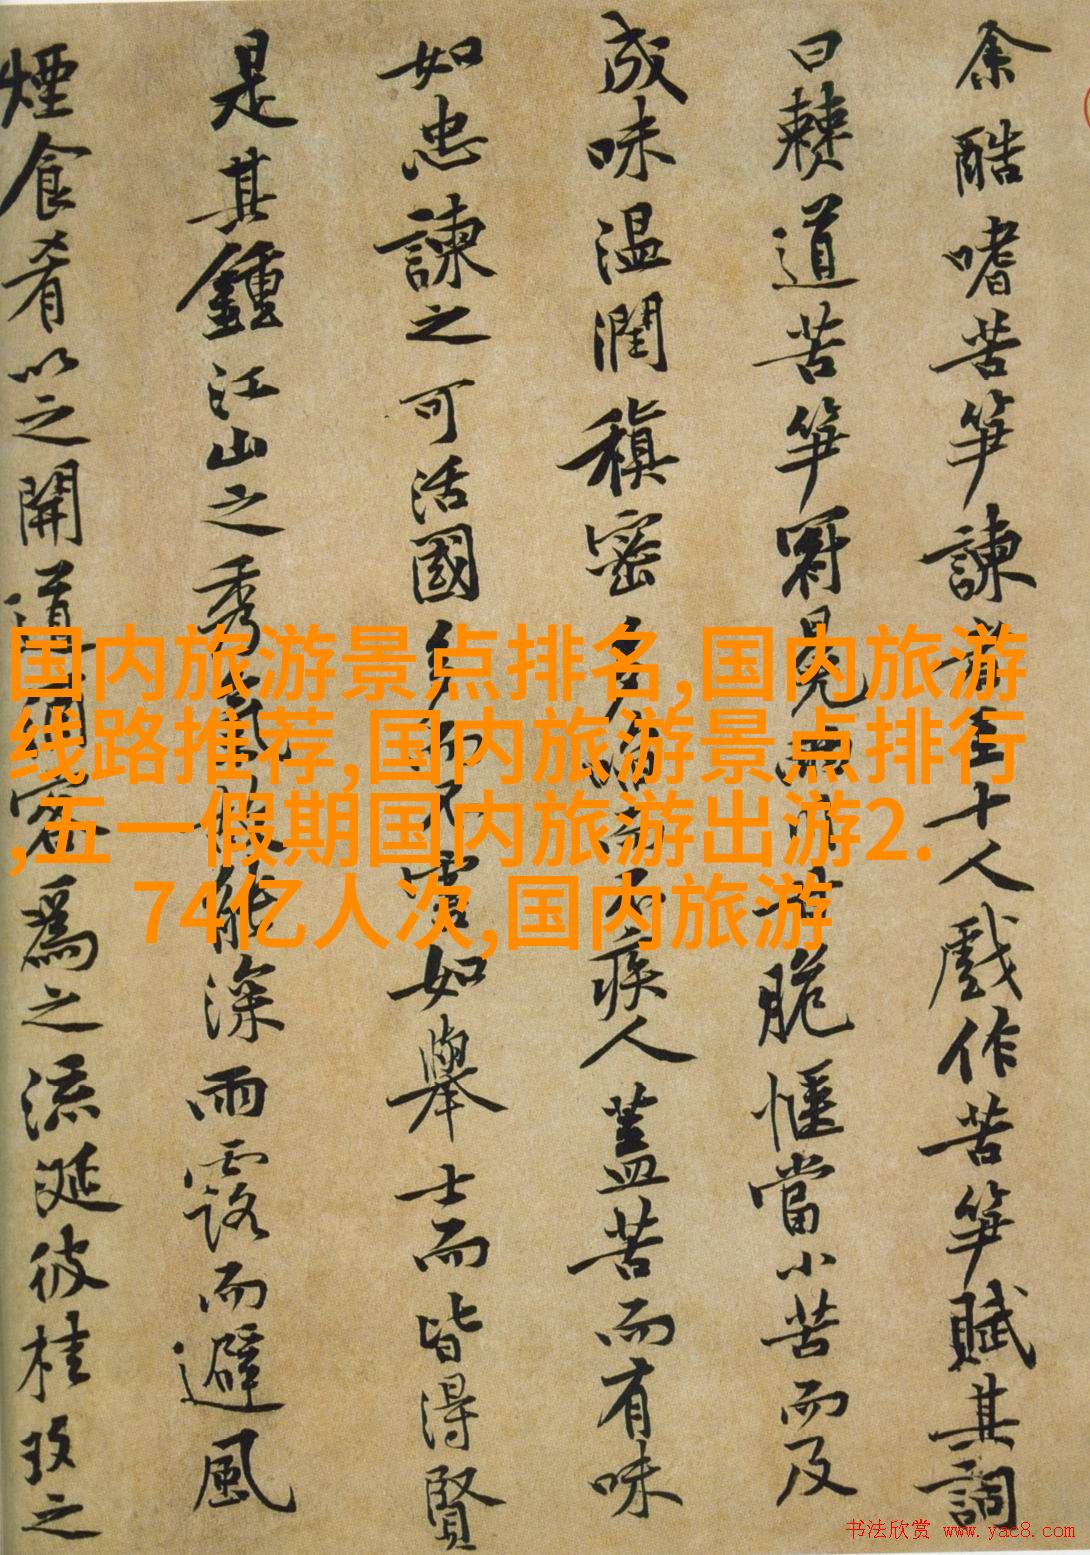 余酷嗜苦笋諫者至十人戲作苦笋賦其詞
曰僰道苦笋冠冕兩川甘脆愜當小苦而及
成味温潤稹密多啗而不疾人蓋苦而有味
如忠諫之可活國多而不害如舉士而皆得賢
是其鍾江山之秀氣故能深雨露而避風
煙食肴以之開道酒客爲之流涎彼桂玫之
国内旅游景点排名,国内旅游
线路推荐,国内旅游景点排行
,五一假期国内旅游出游2.
74亿人次,国内旅游
书法欣赏 www.yac8.com